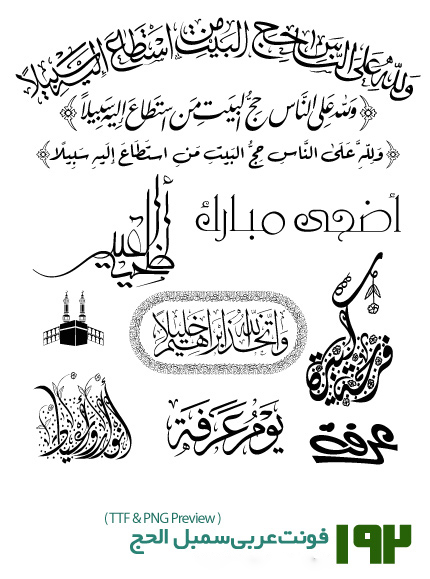 ولله على الناس حج البيت من استطاع إليه سبيلاً
﴿ولله على الناس حج البيت من استطاع إليه سبيلاً﴾
﴿وَلِلَّهِ عَلَى النَّاسِ حِجُّ البَيْتِ مَنِ استَطَاعَ إِلَيهِ سَبِيلًا﴾
أضحى مبارك
واتخذ الله إبراهيم خليلا
فرحة
يَوْمُ عَرَفَة
عرفة
(TTF & PNG Preview)
فونت عربی سمبل الحج
۱۹۲